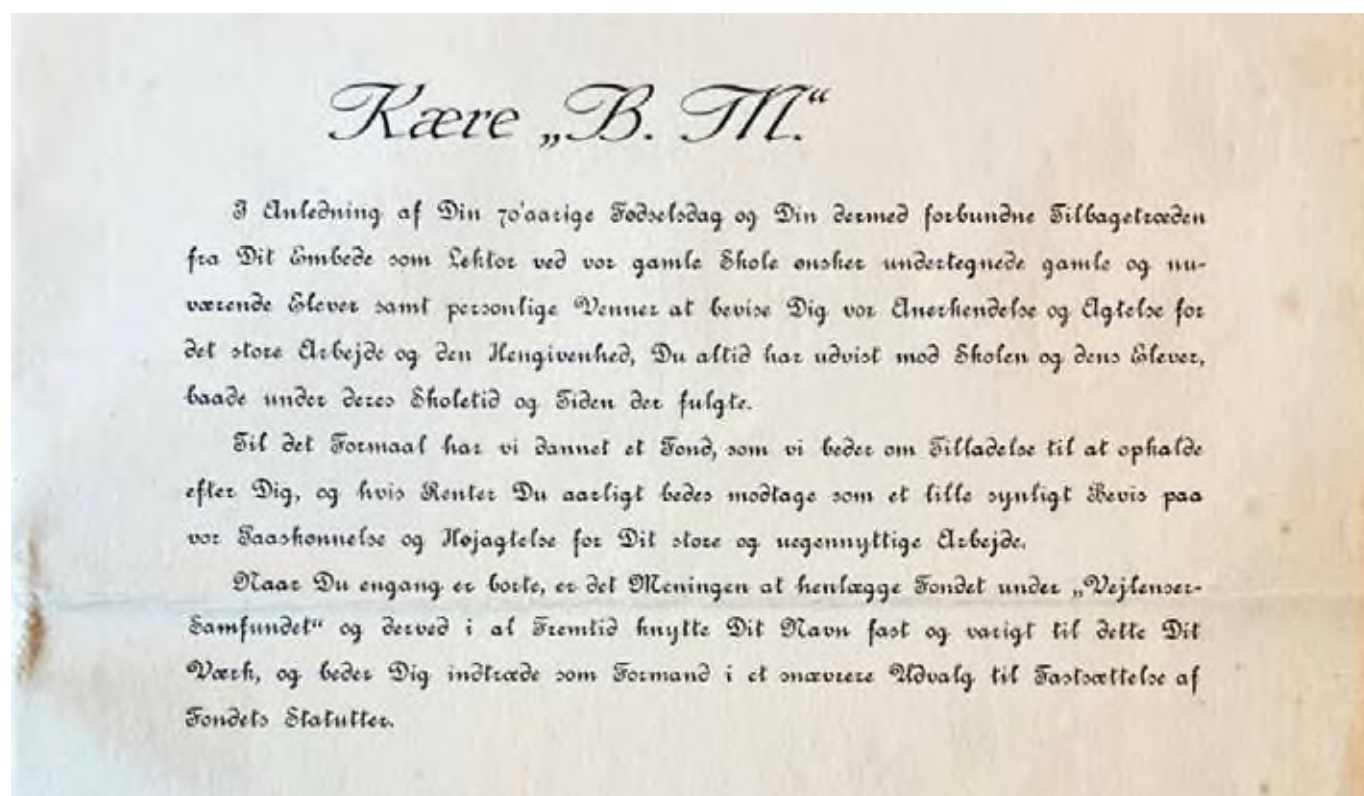 Kære „B. M.“
I Anledning af Din 70'aarige Fødselsdag og Din dermed forbundne Tilbagetræden
fra Dit Embede som Lektor ved vor gamle Skole ønsker undertegnede gamle og nu-
værende Elever samt personlige Venner at bevise Dig vor Anerkendelse og Agtelse for
det store Arbejde og den Hengivenhed, Du altid har udvist mod Skolen og dens Elever,
baade under deres Skoletid og Tiden der fulgte.
Til det Formaal har vi dannet et Fond, som vi beder om Tilladelse til at opkalde
efter Dig, og hvis Renter Du aarligt bedes modtage som et lille synligt Bevis paa
vor Paaskønnelse og Højagtelse for Dit store og uegennyttige Arbejde.
Naar Du engang er borte, er det Meningen at henlægge Fondet under „Vejlenser-
Samfundet“ og derved i al Fremtid knytte Dit Navn fast og varigt til dette Dit
Værk, og beder Dig indtræde som Formand i et snævrere Udvalg til Fastsættelse af
Fondets Statutter.